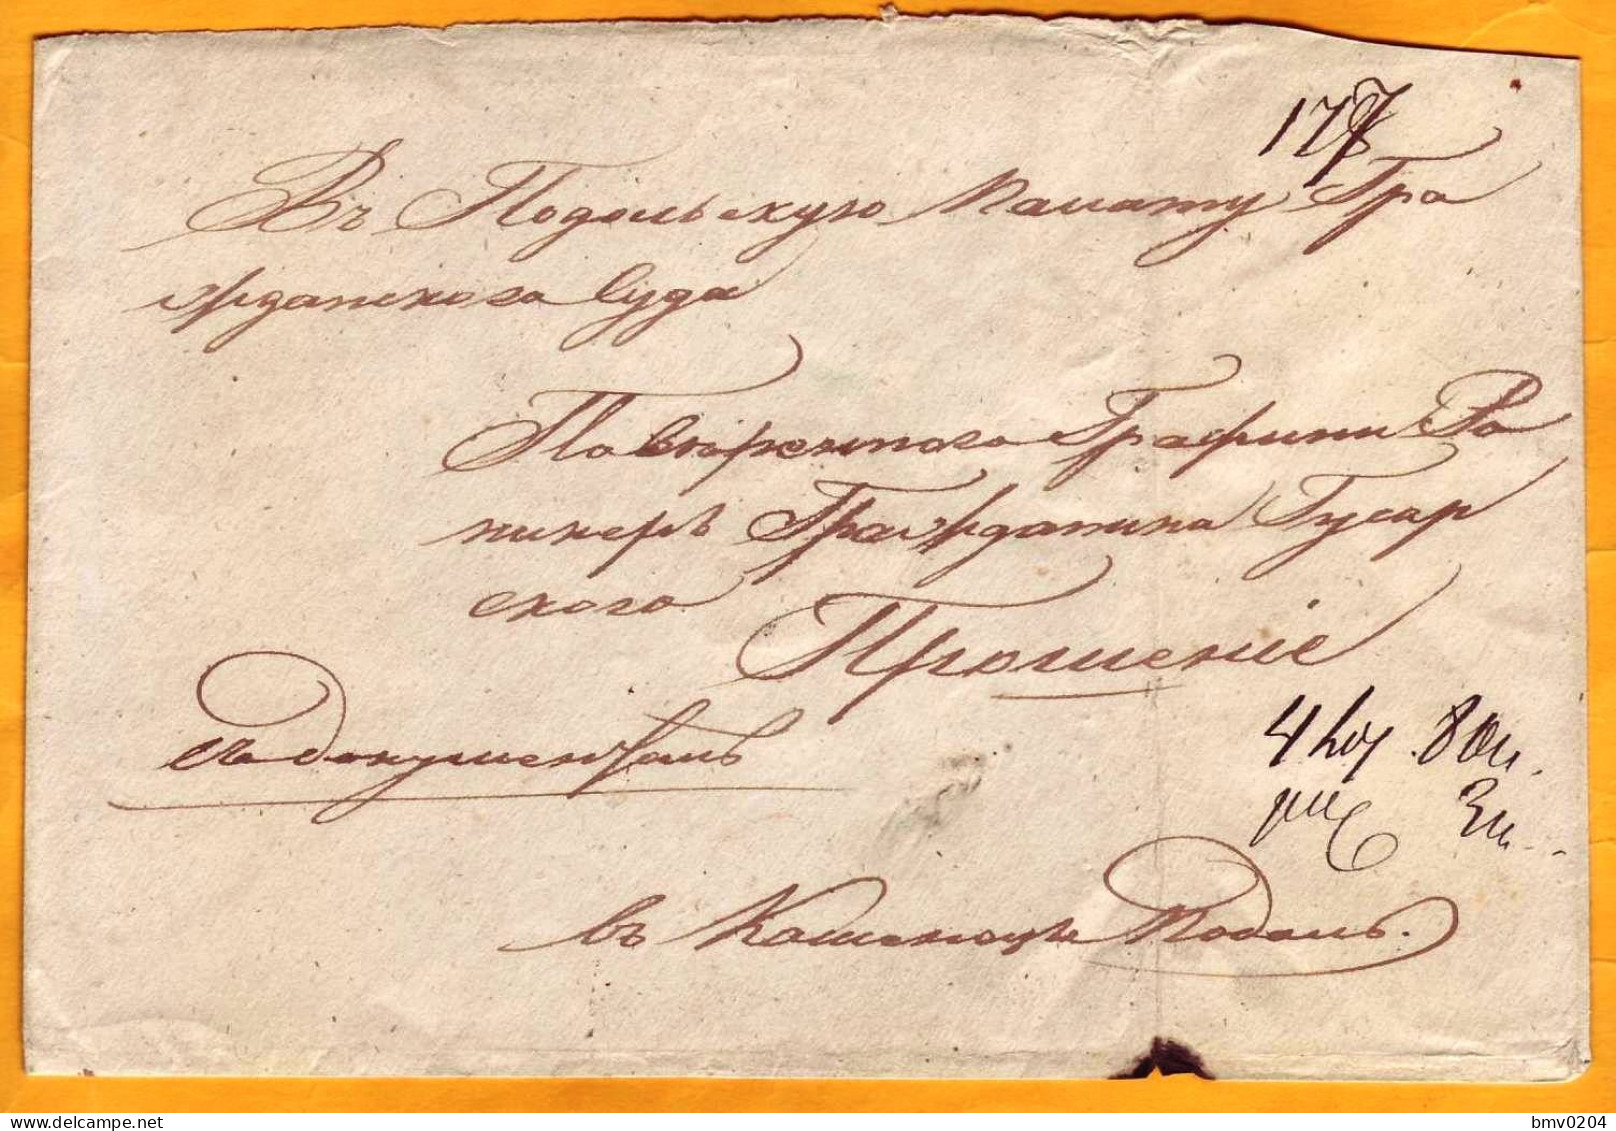 177
Въ Подольскую Палату Гра
жданскаго Суда
Повѣреннаго Графини Ро
никеръ Гражданина Гусар
скаго
Прошеніе
съ документамъ
4 лот. 80 к.
3 к.
въ Каменецъ Подоль.
bmv0204